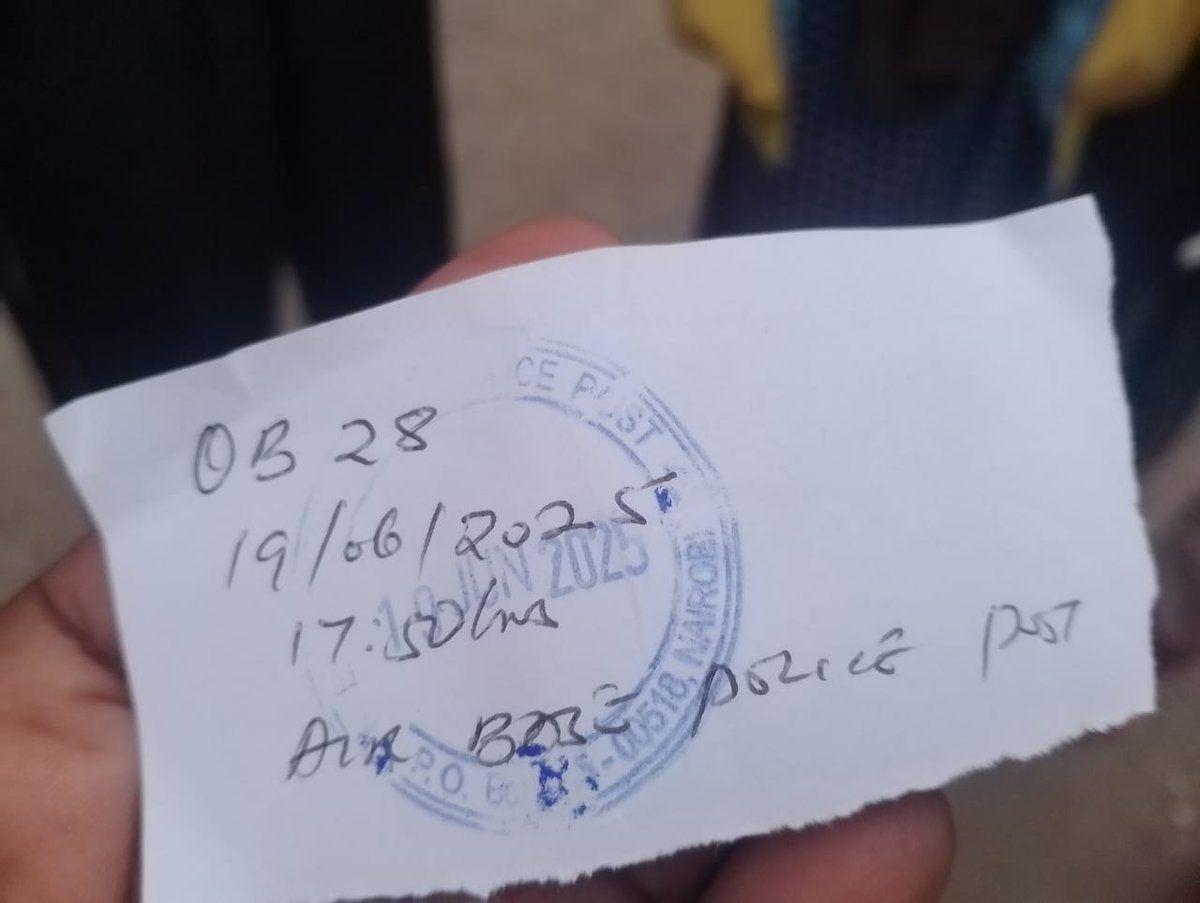 OB 28
19/06/2025
17.50hrs
AIR BASE POLICE POST
CE POST
JUN 2025
P.O. BO
-00518, NAIROBI